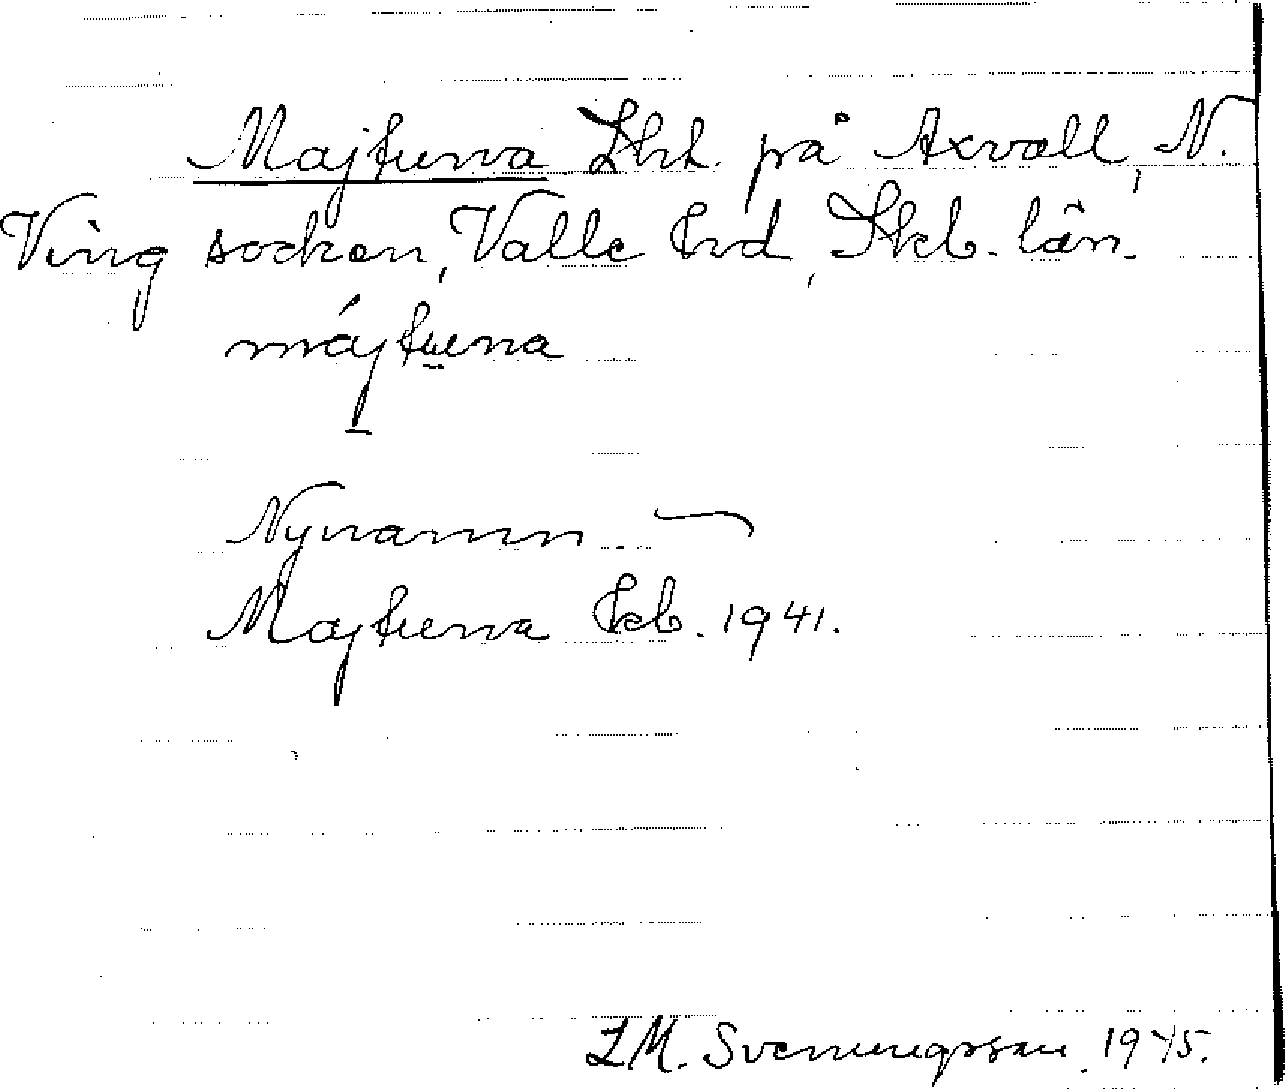 Majtuna Lht. på Axvall, N.
Ving socken, Valle hd, Skb. län.
májtuna
Nynamn.
Majtuna Ekb. 1941.
L.M. Svenungsson. 1945.